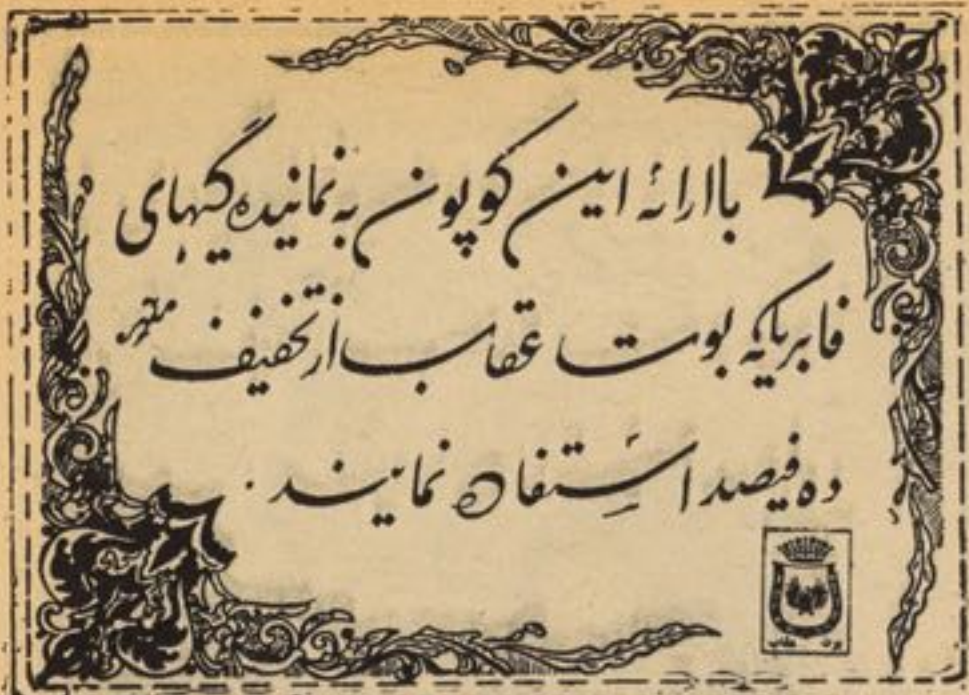 با ارائهٔ این کوپون به نمایندگیهای
فابریکه بوت عقاب از تخفیف
ده فیصد استفاده نمایند.
بوت عقاب